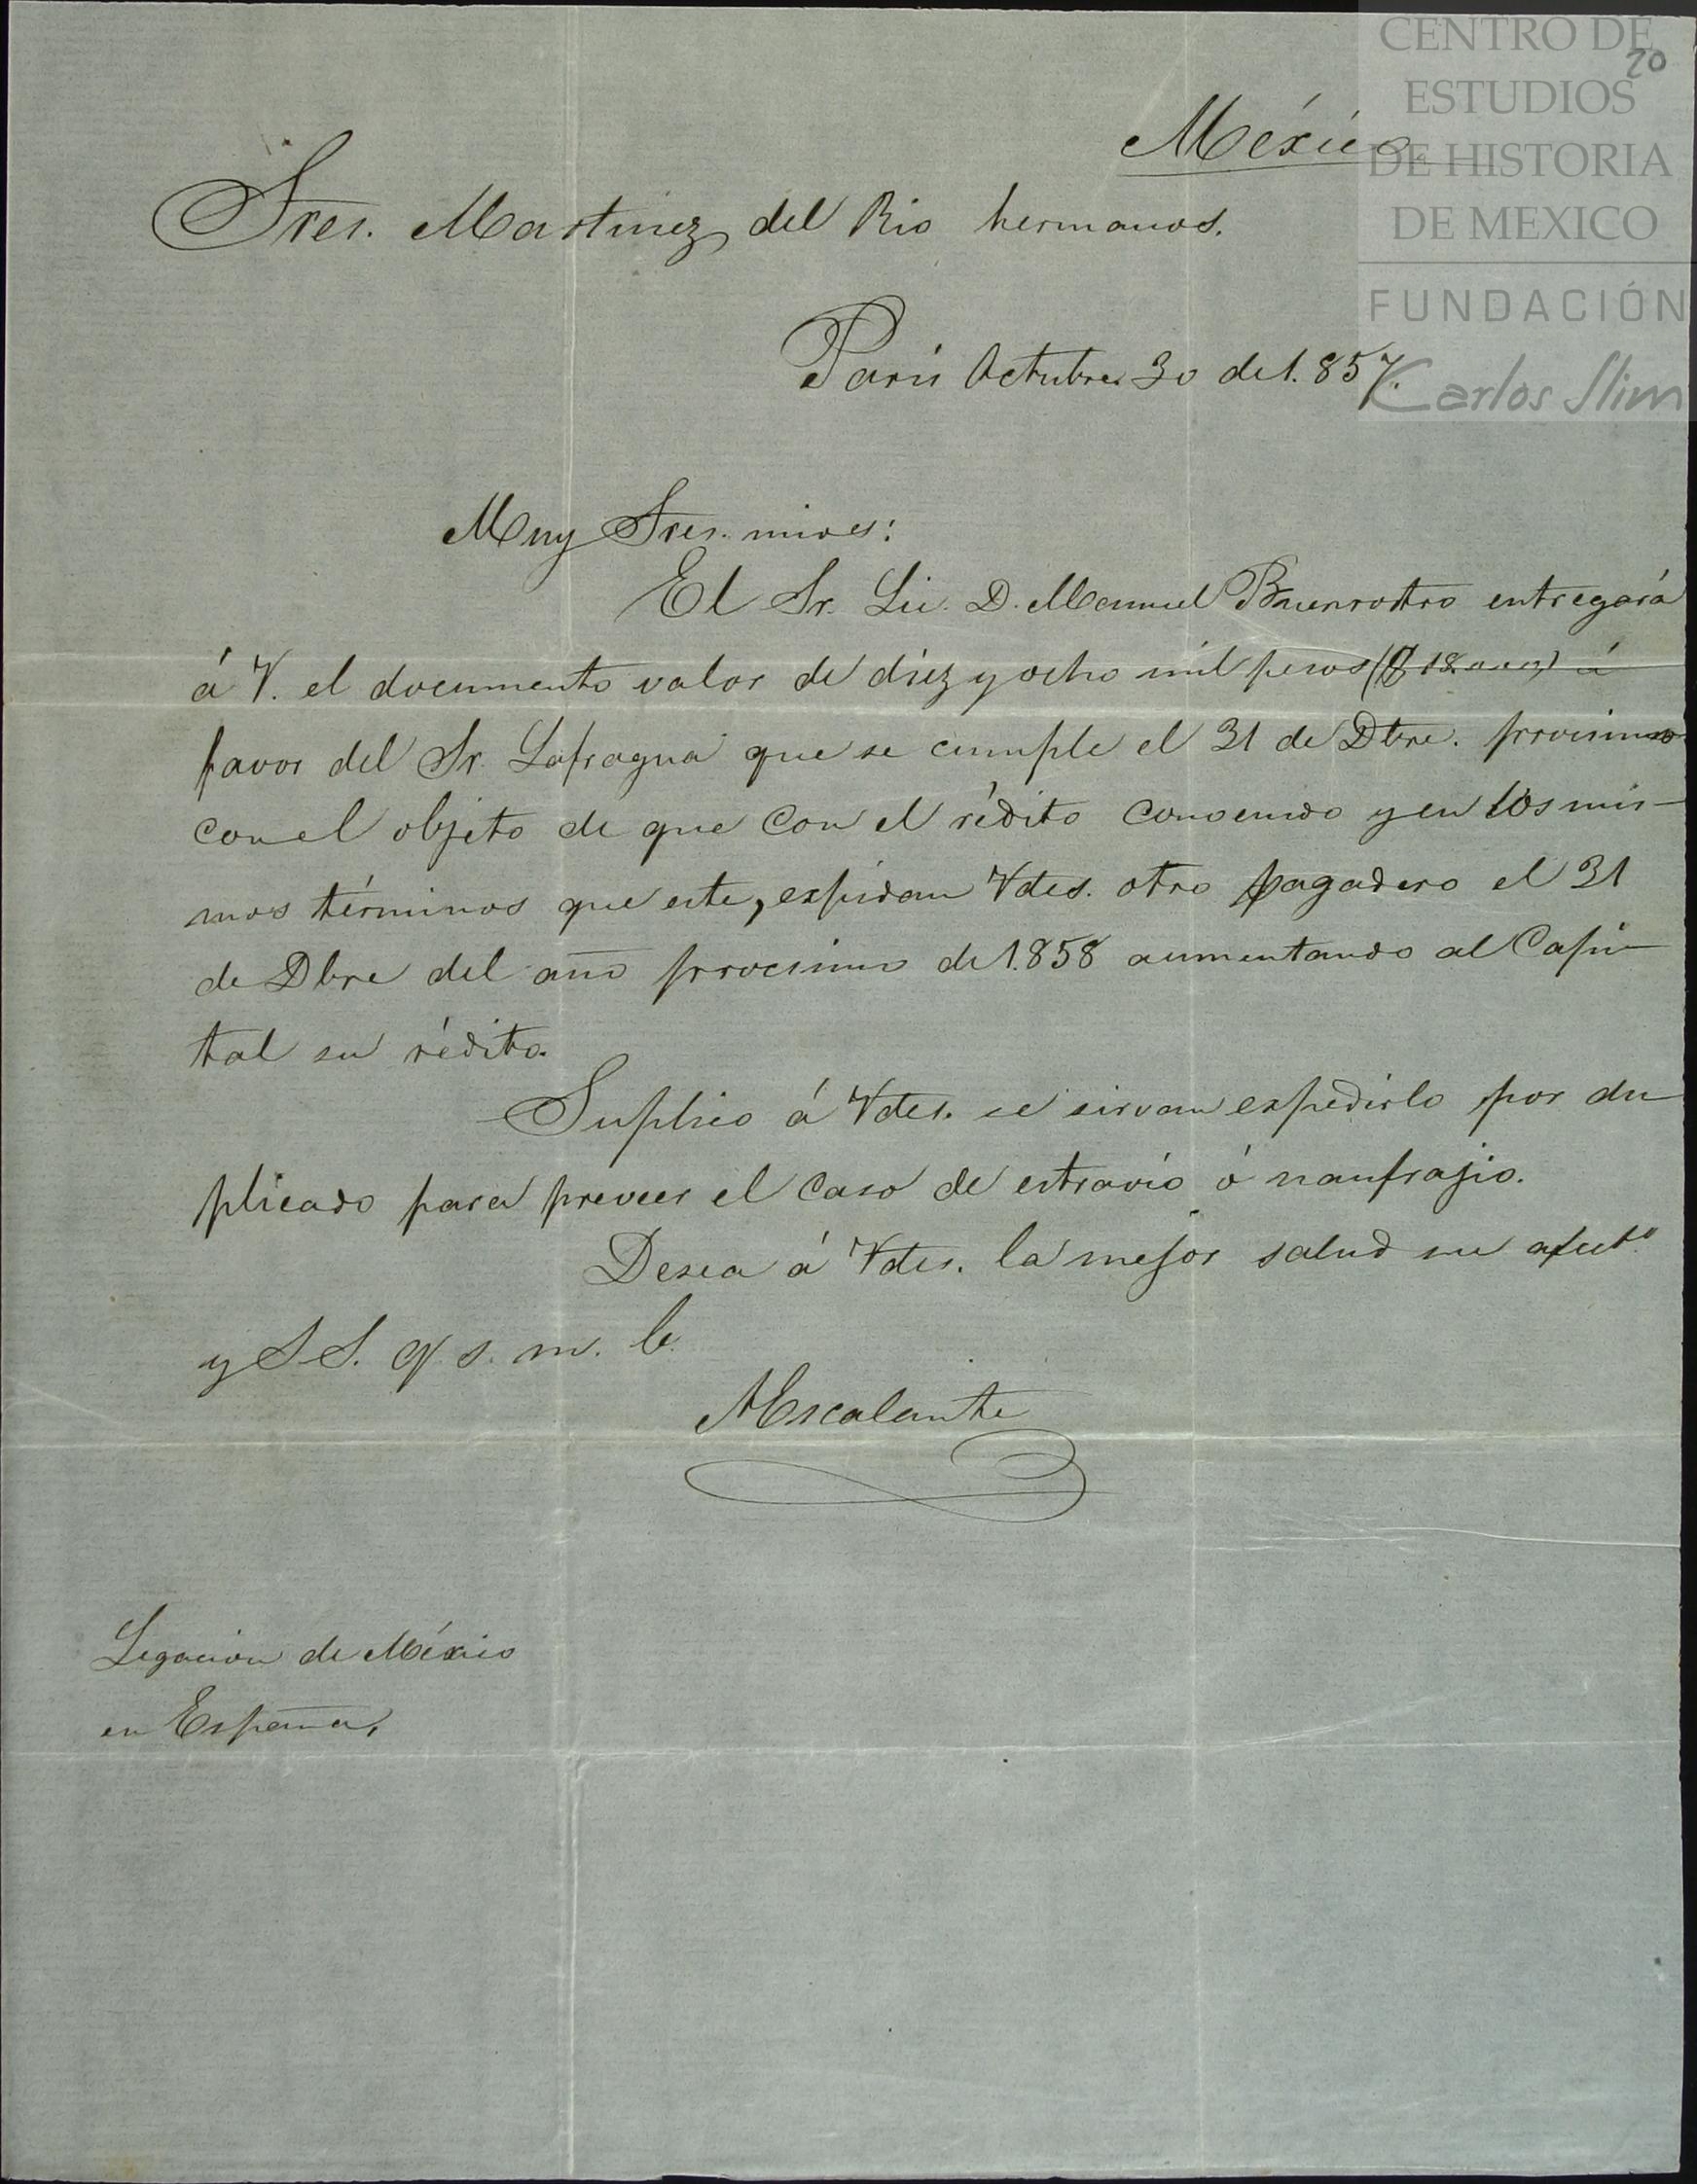 CENTRO DE
20
ESTUDIOS
DE HISTORIA
DE MEXICO
FUNDACIÓN
Carlos Slim
México
Sres. Martinez del Rio hermanos.
Paris Octubre 30 de 1.857.
Muy Sres. mios:
El Sr. Lic. D. Manuel Buenrostro entregará
á V. el documento valor de diez y ocho mil pesos ($ 18.000) á
favor del Sr. Lafragua que se cumple el 31 de Dbre. procsimo
con el objeto de que con el rédito convenido y en los mis-
mos términos que este, espidan Vdes. otro pagadero el 31
de Dbre del año procsimo de 1.858 aumentando al Capi-
tal su rédito.
Suplico á Vdes. se sirvan espedirlo por du-
plicado para preveer el caso de estravío ó naufrajio.
Desea á Vdes. la mejor salud su afect.º
y S S. q. s. m. b.
MEscalante
Legacion de México
en España,